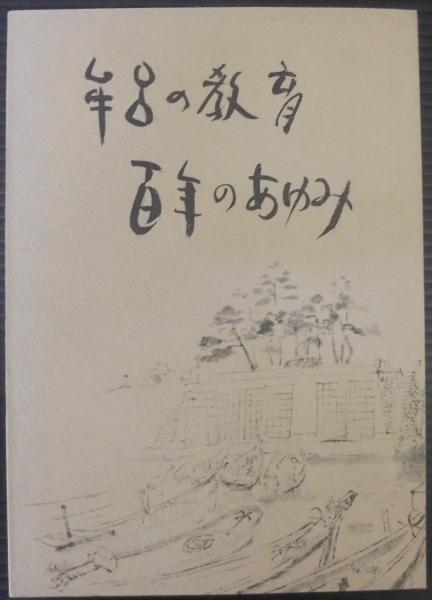 牟呂の教育
百年のあゆみ